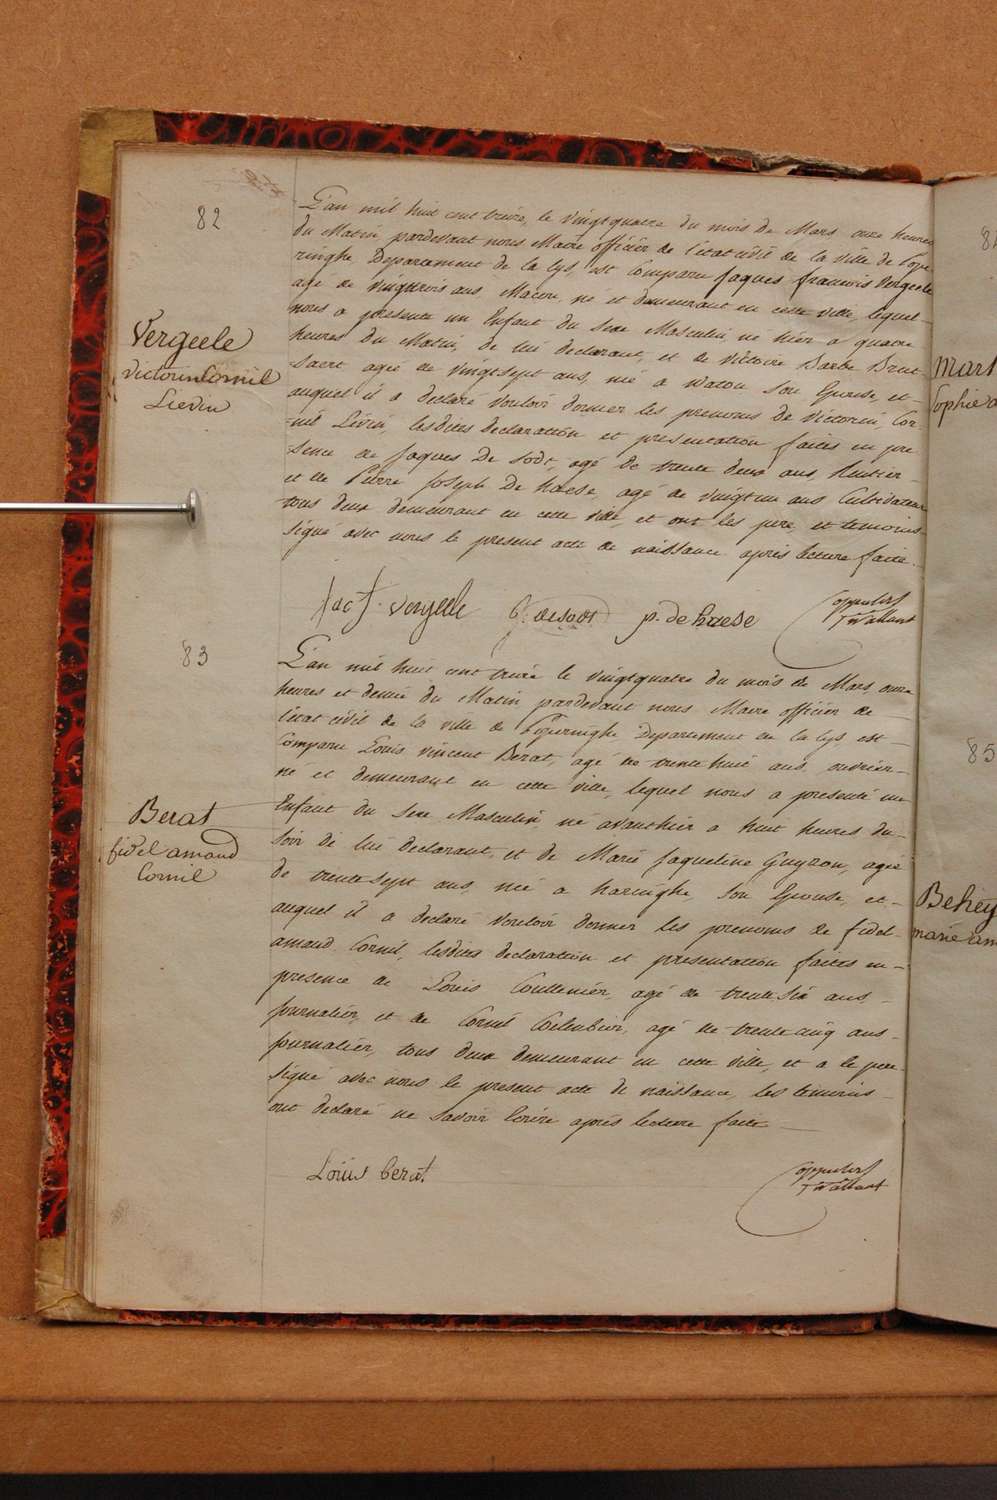 82
Vergeele
Victorin Cornil
Lievin
L'an mil huit cent treize, le vingtquatre du mois de Mars onze heures
du Matin pardevant nous Maire officier de l'état civil de la ville de Pope
ringhe, Departement de la Lys, est Comparu Jaques francois Vergeele
agé de vingttrois ans Macon, né et demeurant en cette ville, lequel
nous a presenté un Enfant du Sexe Masculin, né hier a quatre
heures du Matin, de lui declarant, et de Victoire Barbe Brut
saert agée de vingtsept ans, née a Watou son Epouse, et
auquel il a declaré vouloir donner les prenoms de Victorin, Cor-
nil Livin, lesdites declaration et presentation faites en pre
sence de Jaques De Sodt, agé de trente deux ans, huitier
et de Pierre Joseph De haese, agé de vingtun ans Cultivateur
tous deux demeurant en cette ville, et ont les pere et temoins
signé avec nous le present acte de naissance après lecture faite.
Jac f. vergeele desodt p. de haese
83
Berat
fidel amand
Cornil
L'an mil huit cent treize le vingtquatre du mois de Mars, onze
heures et demie du Matin pardevant nous Maire officier de
l'etat civil de la ville de Poperinghe Departement de la Lys est
Comparu Louis Vincent Berat, agé de trente huit ans, ouvrier
né et demeurant en cette ville, lequel nous a presenté un
Enfant du Sexe Masculin, né avanthier a huit heures du
soir de lui declarant, et de Marie Jaqueline Guyzon, agée
de trente sept ans, née a haringhe, son Epouse, et
auquel il a declaré vouloir donner les prenoms de fidel
amand Cornil, lesdites declaration et presentation faites en
presence de Louis Coullenier, agé de trente six ans
journalier, et de Cornil Coelenbier, agé de trente cinq ans
journalier, tous deux demeurant en cette ville, et a le pere
signé avec nous le present acte de naissance, les temoins
ont declaré ne savoir Ecrire après lecture faite
Louis berat
Mart
Sophie
85
Behey
marie am